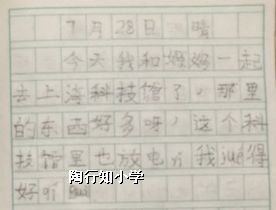 7月28日 晴
今天我和妈妈一起
去上海科技馆了,那里
的东西好多呀,这个科
技馆里也放电yi我jue得
好qi
陶行知小学